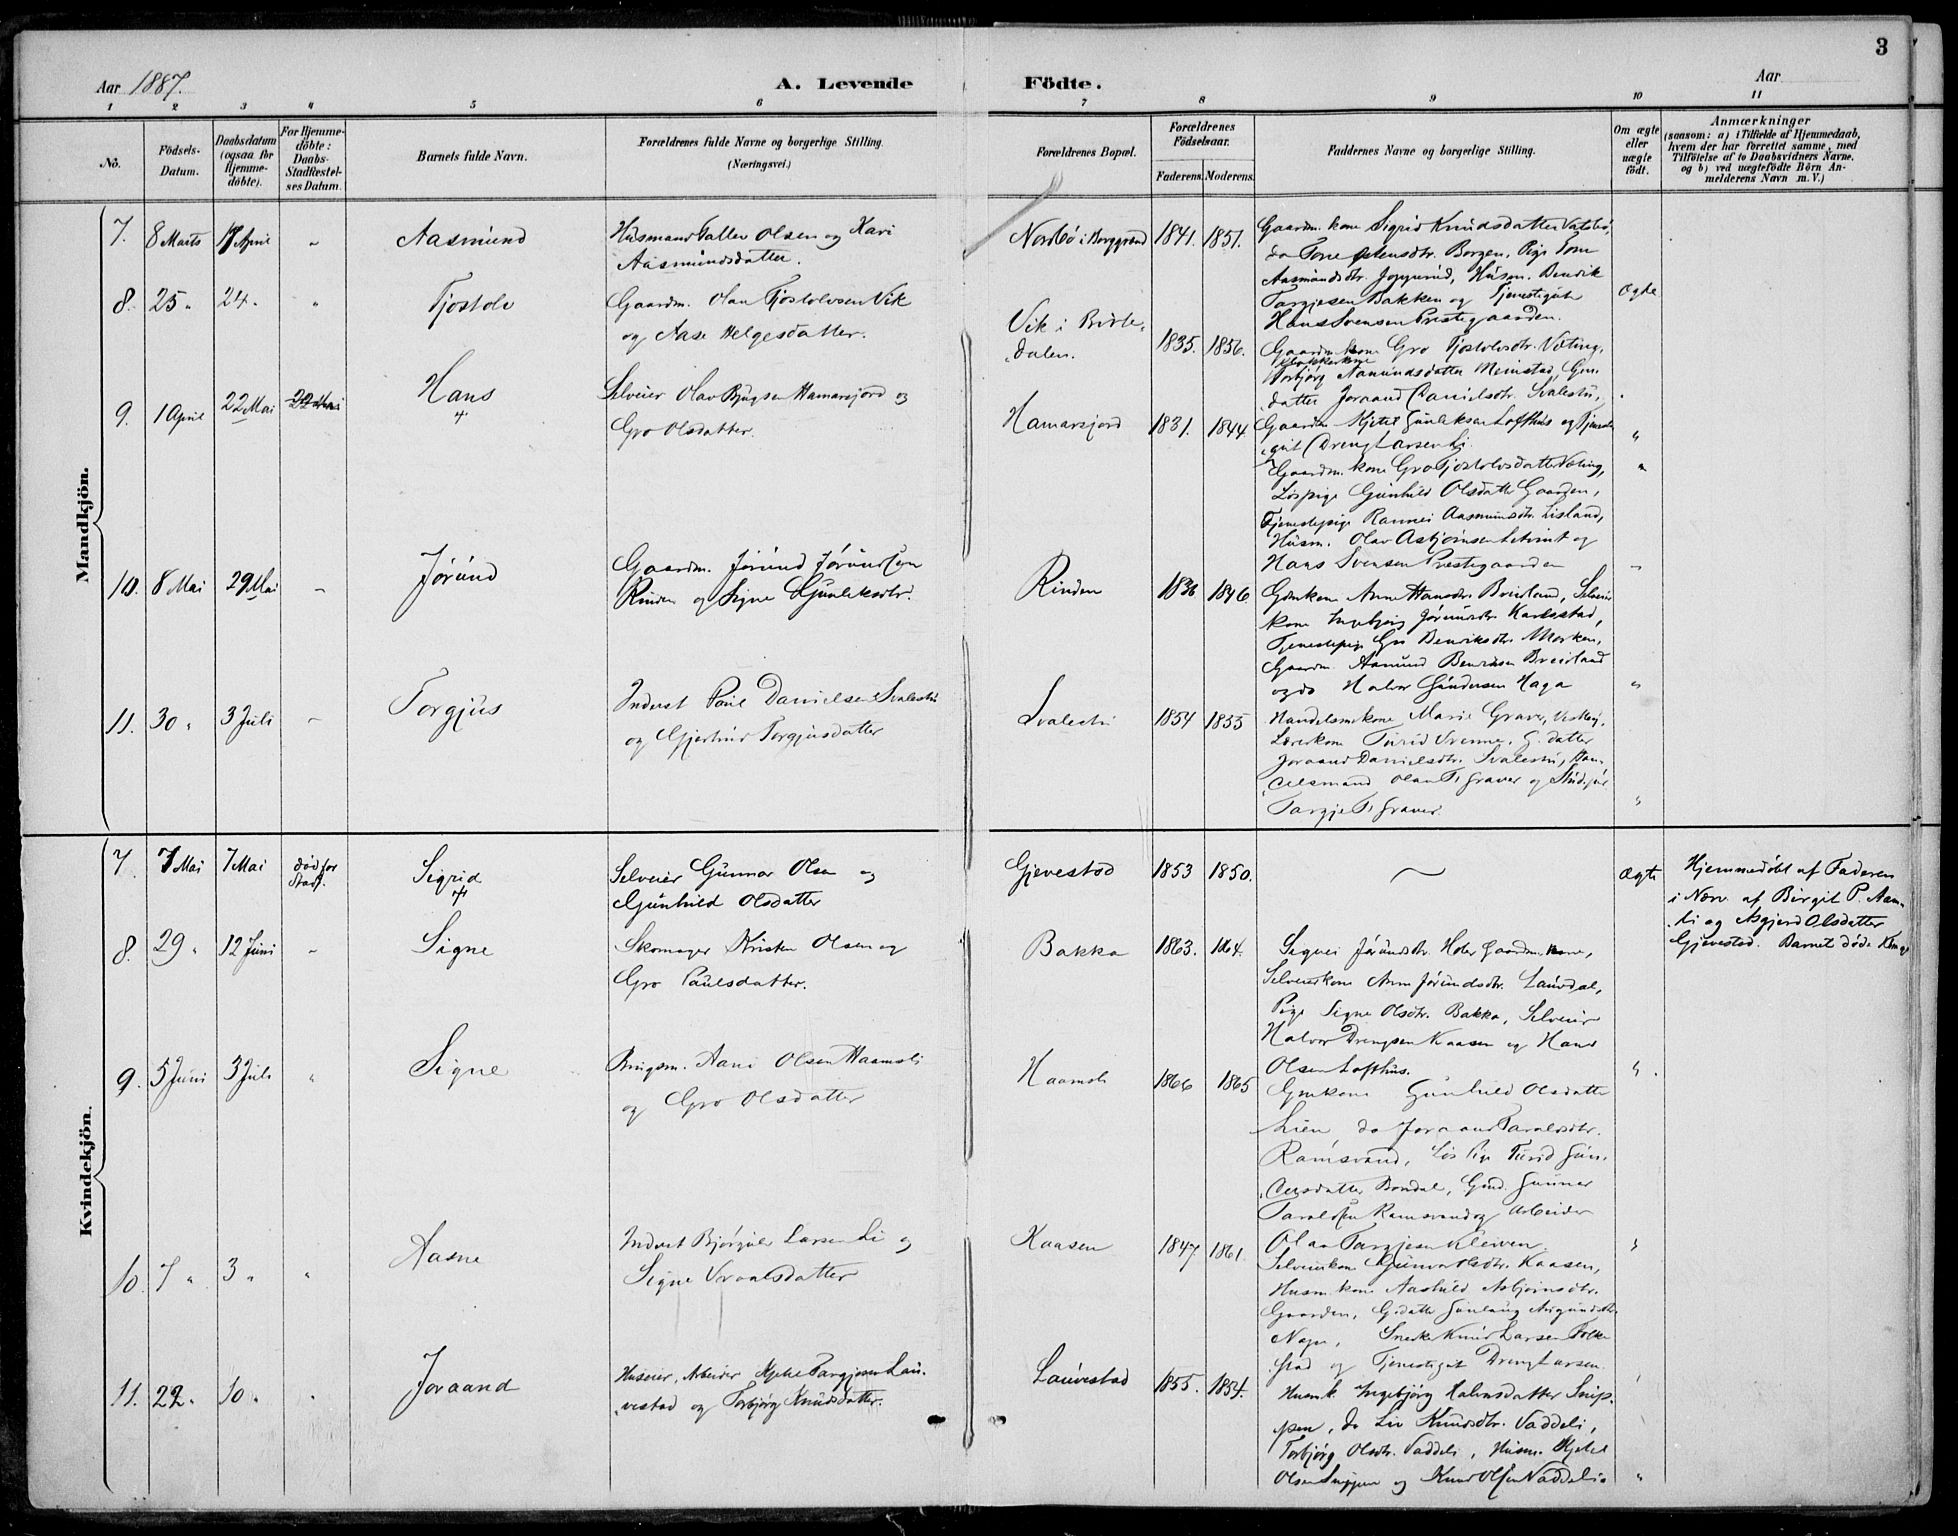 3
Aar 1887.
A. Levende Födte.
Aar
1 2 3 4 5 6 7 8 9 10 11
No.
Födsels-Datum.
Daabsdatum (ogsaa for Hjemme-döbte).
For Hjemme-döbte: Daabs-Stadfæstel-ses Datum.
Barnets fulde Navn.
Forældrenes fulde Navne og borgerlige Stilling. (Næringsvei.)
Forældrenes Bopæl.
Forældrenes Födselsaar.
Faderens. Moderens.
Faddernes Navne og borgerlige Stilling.
Om ægte eller uægte födt.
Anmærkninger
(saasom: a) i Tilfælde af Hjemmedaab, hvem der har forrettet samme, med Tilföielse af to Daabsvidners Navne, og b) ved uægtefödte Börn Anmelderens Navn m. V.)
Mandkjön.
7. 8 Marts 17 April " Aasmund
Husmand Salve Olsen og Kari
Aasmundsdatter.
Norbö i Borggrend 1841. 1851.
Gaardm. kone Sigrid Knudsdatter
do Tone Borgen, Pige Tone
Aasmundsdtr. Husm. Bendik
Targjesen Bakken og Tjenestegut
Hans Svensen Prestegaarden.
Ægte
8. 25 " 24 " " Tjostolv
Gaardm. Olav Tjostolvsen Vik
og Aase Helgesdatter.
Vik i Birte-
dalen. 1835. 1856.
Gaardm. kone Gro Tjostolvsdtr. Veting,
Torbjörg Aamundsdatter
datter Joraand Danielsdtr. Svalestu,
Gaardm. Kjetel Gunleksen Lofthus og Tjeneste
gut Dreng Larsen Li.
"
9. 1 April 22 Mai Hans
Selveier Olav Bjugsen Hamarsjord og
Gro Olsdatter.
Hamarsjord 1831. 1844
Gaardm. kone Gro Tjostolvsdatter Veting,
Löspige Gunhild Olsdatter Gaarden,
Tjenestepige Rannei Aasmundsdtr. Lisland,
Husm. Olav Asbjörnsen og
Hans Svensen Prestegaarden
"
10. 8 Mai 29 Mai " Jörund
Gaardm. Jörund Jörundsen
Rinden og Signe Gunleksdtr.
Rinden 1836 1846
Gdmkone Anne Hansdtr. Breiland, Selveier
kone Ingebjörg Jörundsdtr. Karlsstad,
Tjenestepige Gro Benriksdtr. Morken,
Gaardm. Aamund Benriksen Breiland
og do Halvor Gundersen Haga
"
11. 30 " 3 Juli " Torgjus
Inderst Paul Danielsen Svalestu
og Gjertrud Torgjusdatter
Svalestu 1854 1855
Handelsm.kone Marie Graver,
Lærerkone Turid G. datter
Joraand Danielsdtr. Svalestu, Han-
delsmand Olav T. Graver og
Targje T. Graver.
"
Kvindekjön.
7. 7 Mai 7 Mai död for Stadf. Sigrid
Selveier Gunnar Olsen og
Gunhild Olsdatter
Gjevestad 1853 1850.
Ægte
Hjemmedöbt af Faderen
i Nærv. af Birgit P.
og Asgjerd Olsdatter
Gjevestad. Barnet döde
8. 29 " 12 Juni " Signe
Skomager Kristen Olsen og
Gro Paulsdatter.
Bakka 1863. 1864.
Signe Jörundsdtr. Gaardm. kone,
Selveierkone Anne Jörundsdtr. Lauvdal,
Pige Signe Olsdtr. Bakka, Selveier
Halvor Drengsen Kaasen og Hans
Olsen Lofthus.
"
9. 5 Juni 3 Juli " Signe
Brugsm. Aani Olsen Haamsli
og Gro Olsdatter
Haamsli 1866 1865
Gmkone Gunhild Olsdatter
Lien do Joraand Taraldsdtr.
Ramsvand, Lös Pige Turid Gun-
dersdatter Bondal, Gmd. Gunnar
Taraldsen Ramsvand og Arbeider
Olav Targjesen Kleiven.
"
10. 7 " 3 " " Aasne
Inderst Bjørgulv Larsen Li og
Signe Vraalsdatter
Kaasen 1847 1861.
Selveierkone Kaasen,
Husm. kone Aashild Asbjörnsdtr.
Gaarden, G.datter Gunlaug
Snedker Knud Larsen Folke-
stad og Tjenestegut Dreng Larsen
11. 22 " 10 " " Joraand
Huseier, Arbeider Kjetel Targjesen Lau-
vestad og Torbjörg Knudsdatter.
Lauvestad 1855. 1854.
Husm.k. Ingebjörg Halvorsdatter Snip-
pen, do Liv Knudsdtr. Vaddeli,
Torbjörg Olsdtr. Vaddeli, Husm. Kjetel
Olsen Snippen og Knud Olsen Vaddeli.
"